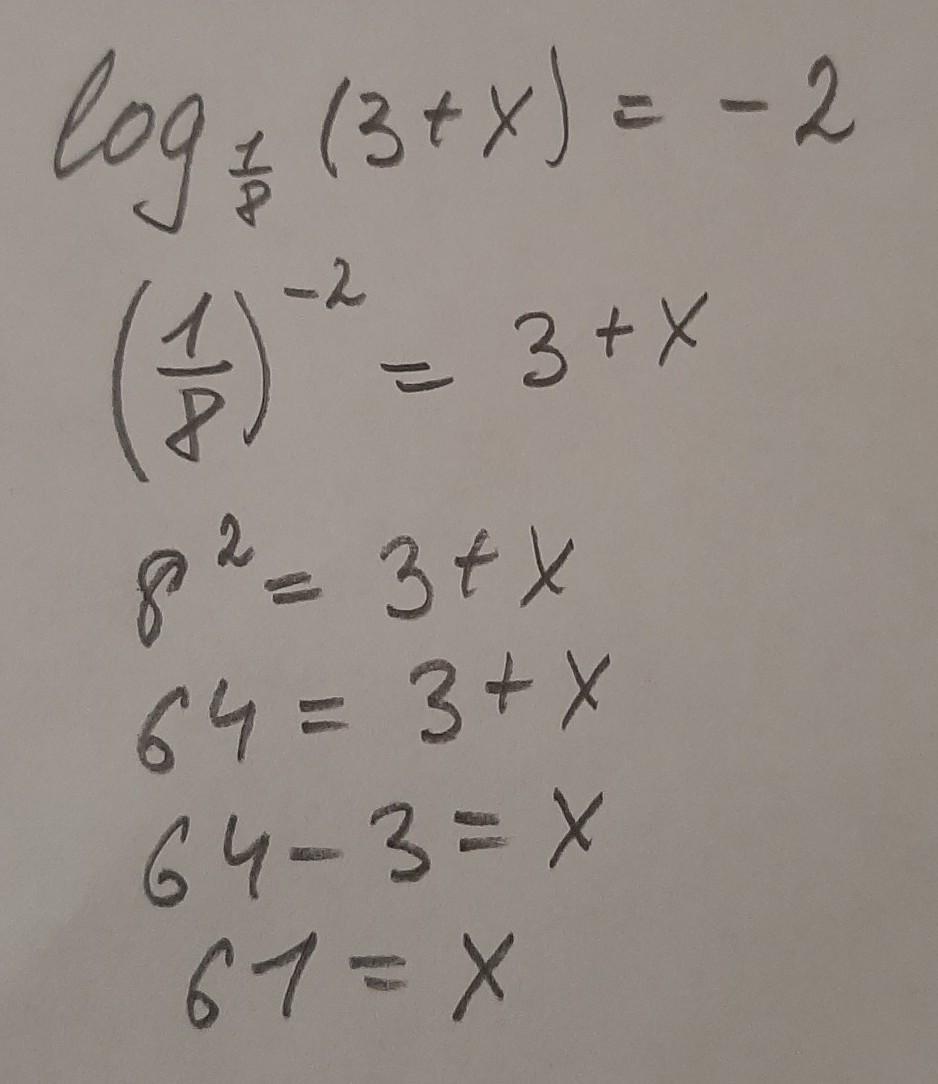 log_{1/8} (3+x) = -2
(1/8)^{-2} = 3+x
8^2 = 3+x
64 = 3+x
64-3 = x
61 = x